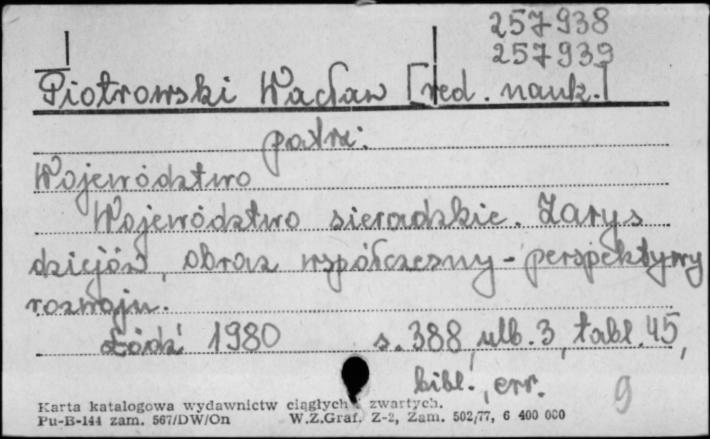 257938
257939
Piotrowski Wacław [red. nauk.]
patrz:
Województwo
Województwo sieradzkie. Zarys
dziejów, obraz współczesny - perspektywy
rozwoju.
Łódź 1980 s. 388, nlb. 3, tabl. 45,
bibl., err.
9
Karta katalogowa wydawnictw ciągłych i zwartych.
Pu-B-144 zam. 567/DW/On W.Z.Graf. Z-2, Zam. 502/77, 6 400 000